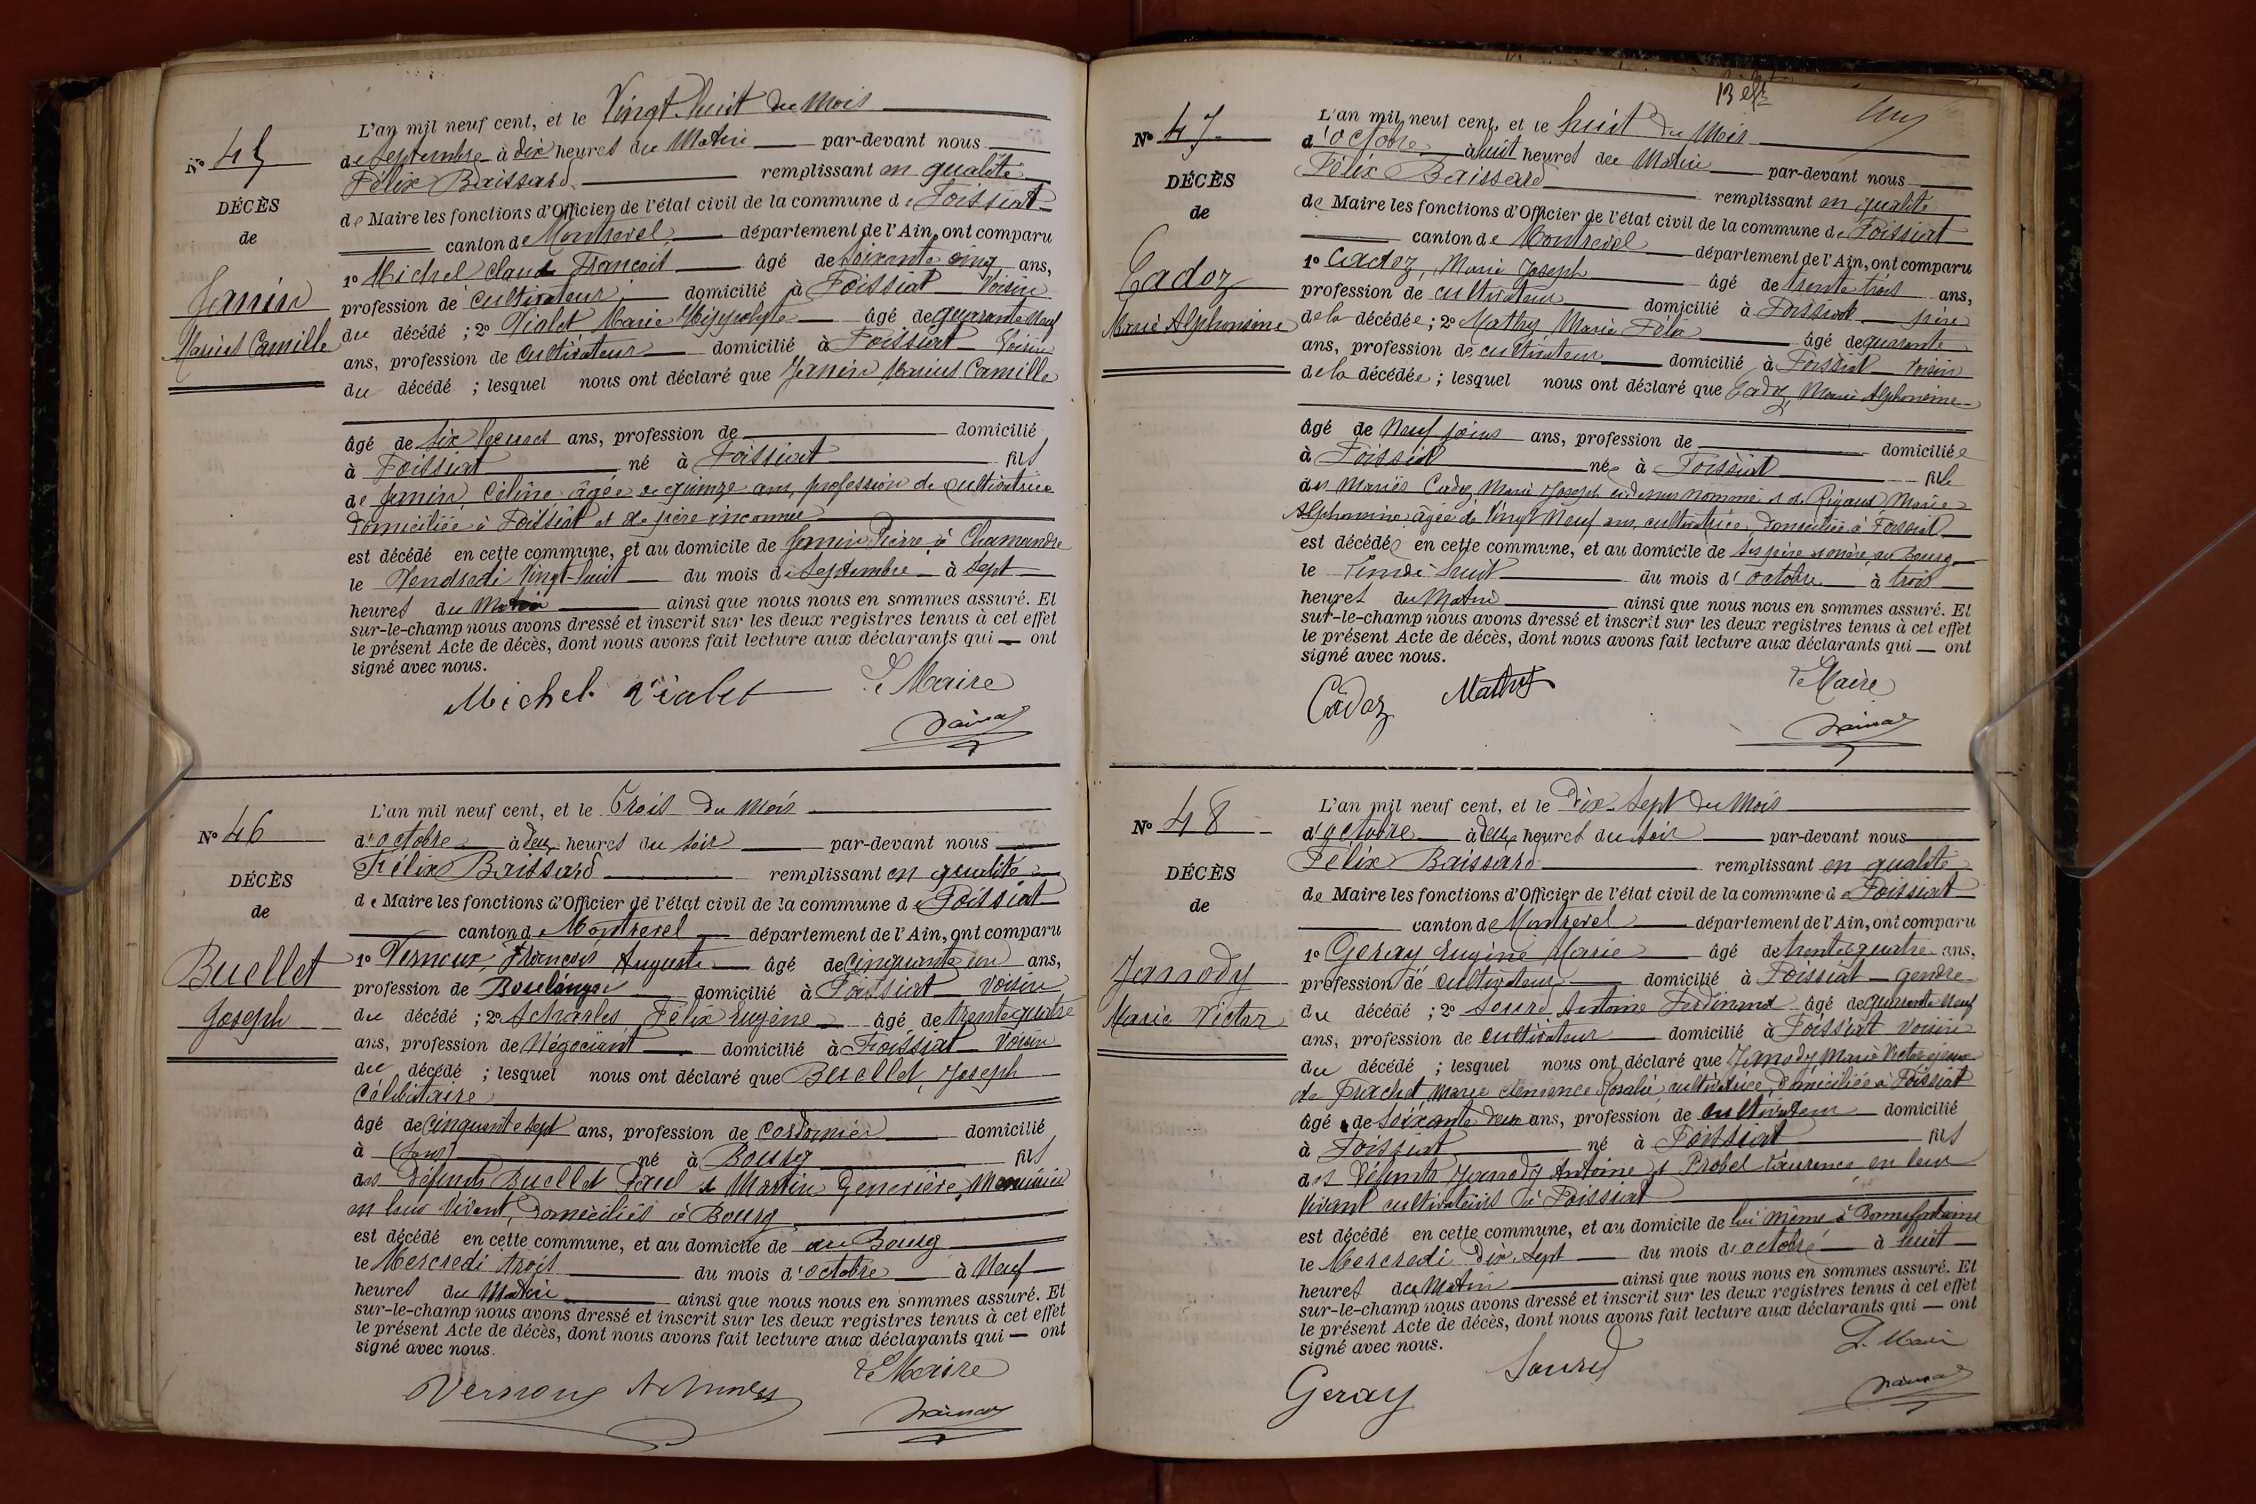 L'an mil neuf cent, et le Vingt-huit du Mois
N° 45
de Septembre à dix heures du Matin par-devant nous
Félix Baissard remplissant en qualité
DÉCÈS
de Maire les fonctions d'Officier de l'état civil de la commune de Foissiat
de
canton de Montrevel département de l'Ain, ont comparu
1° Michel Claude François âgé de soixante cinq ans,
Janin
profession de cultivateur domicilié à Foissiat Voisin
Marius Camille
du décédé ; 2° Vialet Marie Hippolyte âgé de quarante neuf
ans, profession de cultivateur domicilié à Foissiat Voisin
du décédé ; lesquel nous ont déclaré que Janin Marius Camille
âgé de six heures ans, profession de domicilié
à Foissiat né à Foissiat fils
de Janin Céline âgée de quinze ans, profession de cultivatrice
domiciliée à Foissiat et de père inconnu
est décédé en cette commune, et au domicile de Janin Pierre, à Chamandre
le Vendredi Vingt-huit du mois de Septembre à sept
heures du Matin ainsi que nous nous en sommes assuré. Et
sur-le-champ nous avons dressé et inscrit sur les deux registres tenus à cet effet
le présent Acte de décès, dont nous avons fait lecture aux déclarants qui — ont
signé avec nous.
Michel Vialet Le Maire
L'an mil neuf cent, et le Trois du Mois
N° 46
d'octobre à deux heures du soir par-devant nous
Félix Baissard remplissant en qualité
DÉCÈS
de Maire les fonctions d'Officier de l'état civil de la commune de Foissiat
de
canton d Montrevel département de l'Ain, ont comparu
Buellet
1° Vernoux, François Auguste âgé de cinquante un ans,
profession de Boulanger domicilié à Foissiat Voisin
Joseph
du décédé ; 2° Acharles Félix Eugène âgé de trente quatre
ans, profession de Négociant domicilié à Foissiat Voisin
du décédé ; lesquel nous ont déclaré que Buellet, Joseph
Célibataire
âgé de cinquante sept ans, profession de cordonnier domicilié
à né à Bourg fils
des Défunts Buellet Paul et Martin Geneviève,
en leur Vivant, domiciliés à Bourg
est décédé en cette commune, et au domicile de au Bourg
le Mercredi trois du mois d'octobre à Neuf
heures du Matin ainsi que nous nous en sommes assuré. Et
sur-le-champ nous avons dressé et inscrit sur les deux registres tenus à cet effet
le présent Acte de décès, dont nous avons fait lecture aux déclarants qui — ont
signé avec nous.
Vernoux Le Maire
L'an mil neuf cent, et le huit du Mois
N° 47
d'octobre à huit heures du Matin par-devant nous
Félix Baissard remplissant en qualité
DÉCÈS
de Maire les fonctions d'Officier de l'état civil de la commune de Foissiat
de
canton de Montrevel département de l'Ain, ont comparu
Cadoz
1° Cadoz, Marie Joseph âgé de trente trois ans,
profession de cultivateur domicilié à Foissiat père
Marie Alphonsine
de la décédée ; 2° Mathy Marie Félix âgé de quarante
ans, profession de cultivateur domicilié à Foissiat Voisin
de la décédée ; lesquel nous ont déclaré que Cadoz, Marie Alphonsine
âgé de Neuf jours ans, profession de domiciliée
à Foissiat née à Foissiat fille
des Mariés Cadoz Marie Joseph ci-dessus nommé et de Rigaud Marie
Alphonsine âgée de Vingt Neuf ans, cultivatrice, domiciliée à Foissiat
est décédée en cette commune, et au domicile de ses père et mère, au Bourg
le Lundi huit du mois d'octobre à trois
heures du Matin ainsi que nous nous en sommes assuré. Et
sur-le-champ nous avons dressé et inscrit sur les deux registres tenus à cet effet
le présent Acte de décès, dont nous avons fait lecture aux déclarants qui — ont
signé avec nous.
Cadoz Mathy Le Maire
L'an mil neuf cent, et le Dix-Sept du Mois
N° 48
d'octobre à deux heures du soir par-devant nous
Félix Baissard remplissant en qualité
DÉCÈS
de Maire les fonctions d'Officier de l'état civil de la commune de Foissiat
de
canton de Montrevel département de l'Ain, ont comparu
Janody
1° Geray Eugène Marie âgé de trente quatre ans,
profession de cultivateur domicilié à Foissiat gendre
Marie Victor
du décédé ; 2° Antoine Ferdinand âgé de quarante Neuf
ans, profession de cultivateur domicilié à Foissiat Voisin
du décédé ; lesquel nous ont déclaré que Janody Marie Victor époux
de Prachet, Marie Clémence Rosalie, cultivatrice, domiciliée à Foissiat
âgé de soixante deux ans, profession de cultivateur domicilié
à Foissiat né à Foissiat fils
des Défunts Janody Antoine et Probel Laurence en leur
Vivant cultivateurs à Foissiat
est décédé en cette commune, et au domicile de lui même à Bonnefontaine
le Mercredi Dix-Sept du mois de octobre à huit
heures du Matin ainsi que nous nous en sommes assuré. Et
sur-le-champ nous avons dressé et inscrit sur les deux registres tenus à cet effet
le présent Acte de décès, dont nous avons fait lecture aux déclarants qui — ont
signé avec nous.
Geray Le Maire